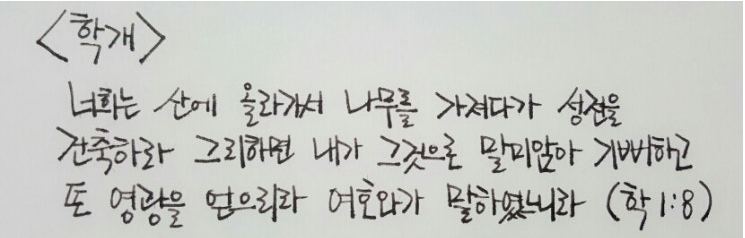 <학개>
너희는 산에 올라가서 나무를 가져다가 성전을
건축하라 그리하면 내가 그것으로 말미암아 기뻐하고
또 영광을 얻으리라 여호와가 말하였느니라 (학 1:8)